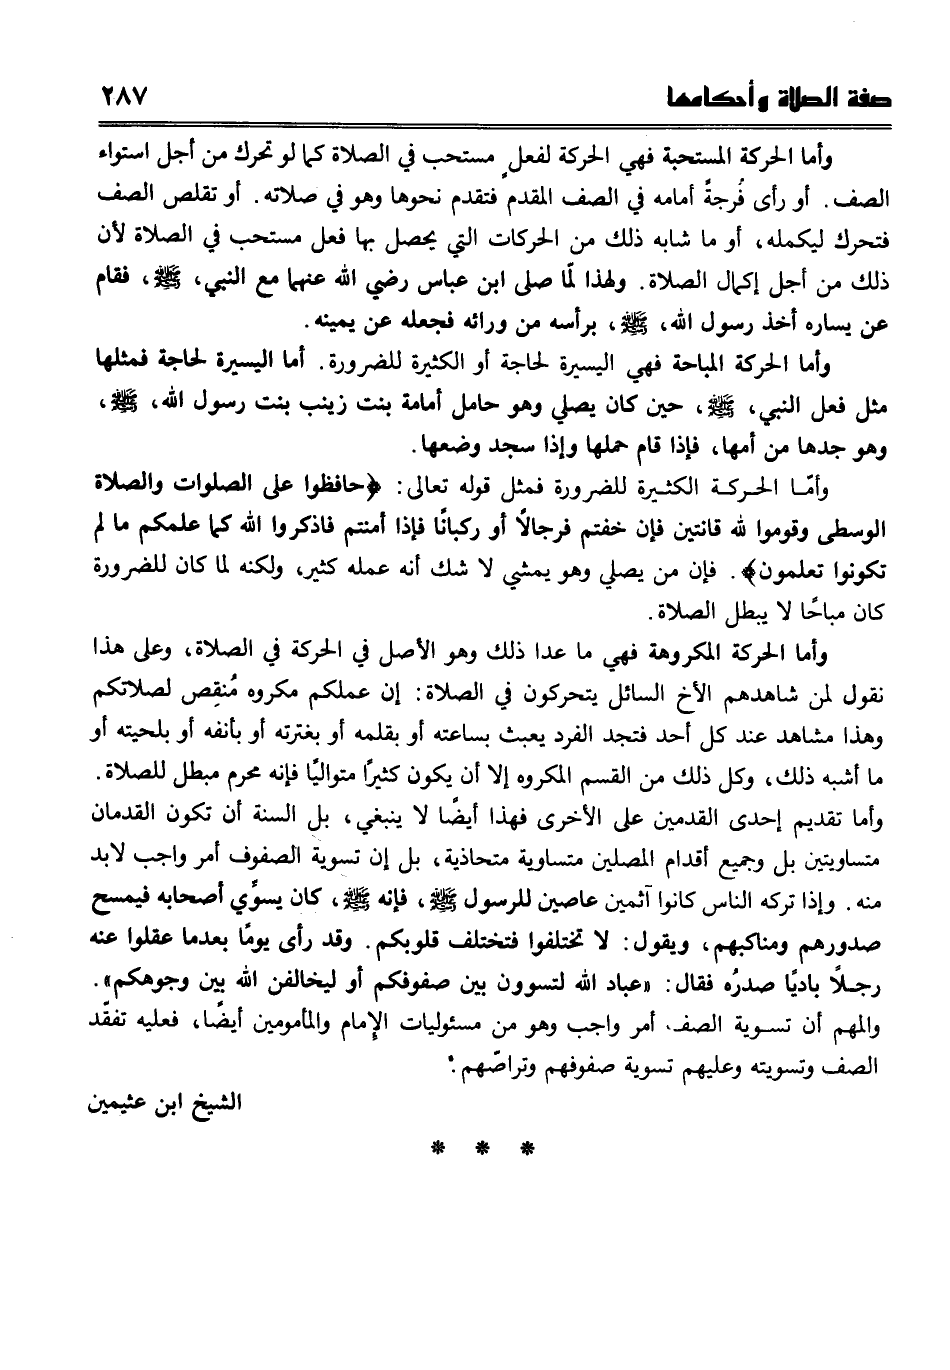 صفة الصلاة وأحكامها ٢٨٧
وأما الحركة المستحبة فهي الحركة لفعلٍ مستحب في الصلاة كما لو تحرك من أجل استواء
الصف. أو رأى فُرجةً أمامه في الصف المقدم فتقدم نحوها وهو في صلاته. أو تقلص الصف
فتحرك ليكمله، أو ما شابه ذلك من الحركات التي يحصل بها فعل مستحب في الصلاة لأن
ذلك من أجل إكمال الصلاة. ولهذا لمّا صلى ابن عباس رضي الله عنهما مع النبي، ﷺ، فقام
عن يساره أخذ رسول الله، ﷺ، برأسه من ورائه فجعله عن يمينه.
وأما الحركة المباحة فهي اليسيرة لحاجة أو الكثيرة للضرورة. أما اليسيرة لحاجة فمثلها
مثل فعل النبي، ﷺ، حين كان يصلي وهو حامل أمامة بنت زينب بنت رسول الله، ﷺ،
وهو جدها من أمها، فإذا قام حملها وإذا سجد وضعها.
وأمّا الحركة الكثيرة للضرورة فمثل قوله تعالى: ﴿حافظوا على الصلوات والصلاة
الوسطى وقوموا لله قانتين فإن خفتم فرجالاً أو ركبانًا فإذا أمنتم فاذكروا الله كما علمكم ما لم
تكونوا تعلمون﴾. فإن من يصلي وهو يمشي لا شك أنه عمله كثير، ولكنه لما كان للضرورة
كان مباحًا لا يبطل الصلاة.
وأما الحركة المكروهة فهي ما عدا ذلك وهو الأصل في الحركة في الصلاة، وعلى هذا
نقول لمن شاهدهم الأخ السائل يتحركون في الصلاة: إن عملكم مكروه مُنقِص لصلاتكم
وهذا مشاهد عند كل أحد فتجد الفرد يعبث بساعته أو بقلمه أو بغترته أو بأنفه أو بلحيته أو
ما أشبه ذلك، وكل ذلك من القسم المكروه إلا أن يكون كثيرًا متواليًا فإنه محرم مبطل للصلاة.
وأما تقديم إحدى القدمين على الأخرى فهذا أيضًا لا ينبغي، بل السنة أن تكون القدمان
متساويتين بل وجميع أقدام المصلين متساوية متحاذية، بل إن تسوية الصفوف أمر واجب لابد
منه. وإذا تركه الناس كانوا آثمين عاصين للرسول ﷺ، فإنه ﷺ، كان يسوِّي أصحابه فيمسح
صدورهم ومناكبهم، ويقول: لا تختلفوا فتختلف قلوبكم. وقد رأى يومًا بعدما عقلوا عنه
رجلاً باديًا صدرُه فقال: «عباد الله لتسوون بين صفوفكم أو ليخالفن الله بين وجوهكم».
والمهم أن تسوية الصف أمر واجب وهو من مسئوليات الإمام والمأمومين أيضًا، فعليه تفقّد
الصف وتسويته وعليهم تسوية صفوفهم وتراصّهم.
الشيخ ابن عثيمين
* * *